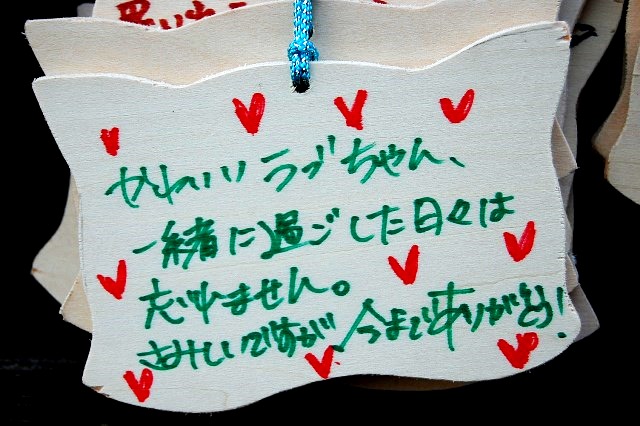 思い出
かわいいラブちゃん、
一緒に過ごした日々は
忘れません。
さみしいですが今までありがとう!